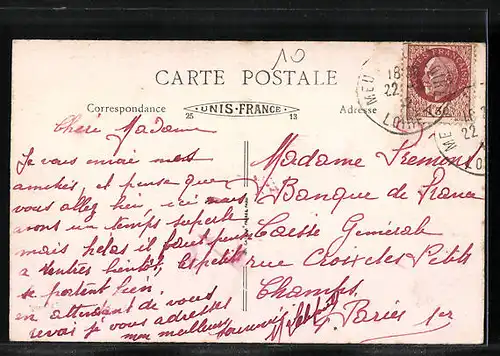 10
CARTE POSTALE
Correspondance
UNIS-FRANCE
25
13
Adresse
18
22
MEU
LOIRE
1F50
18
22
ME
LO
Chère Madame
Je vous envoie mes
amitiés, et pense que
vous allez bien ici nous
avons un temps superbe
mais hélas il faut penser
à rentrer bientôt, les petits
se portent bien.
en attendant de vous
revoir je vous adresse
mon meilleur souvenir
Madame Fremont
Banque de France
Caisse Générale
rue Croix des Petits
Champs
Paris 1er